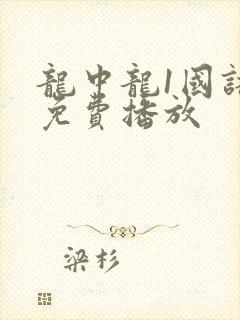 龍中龍1國語
免費播放
梁杉